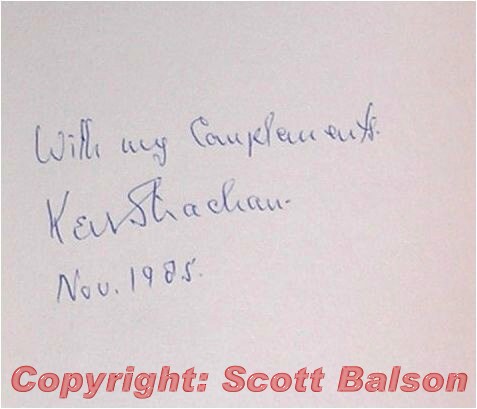 With my Complements.
Ken Strachan.
Nov. 1985.
Copyright: Scott Balson